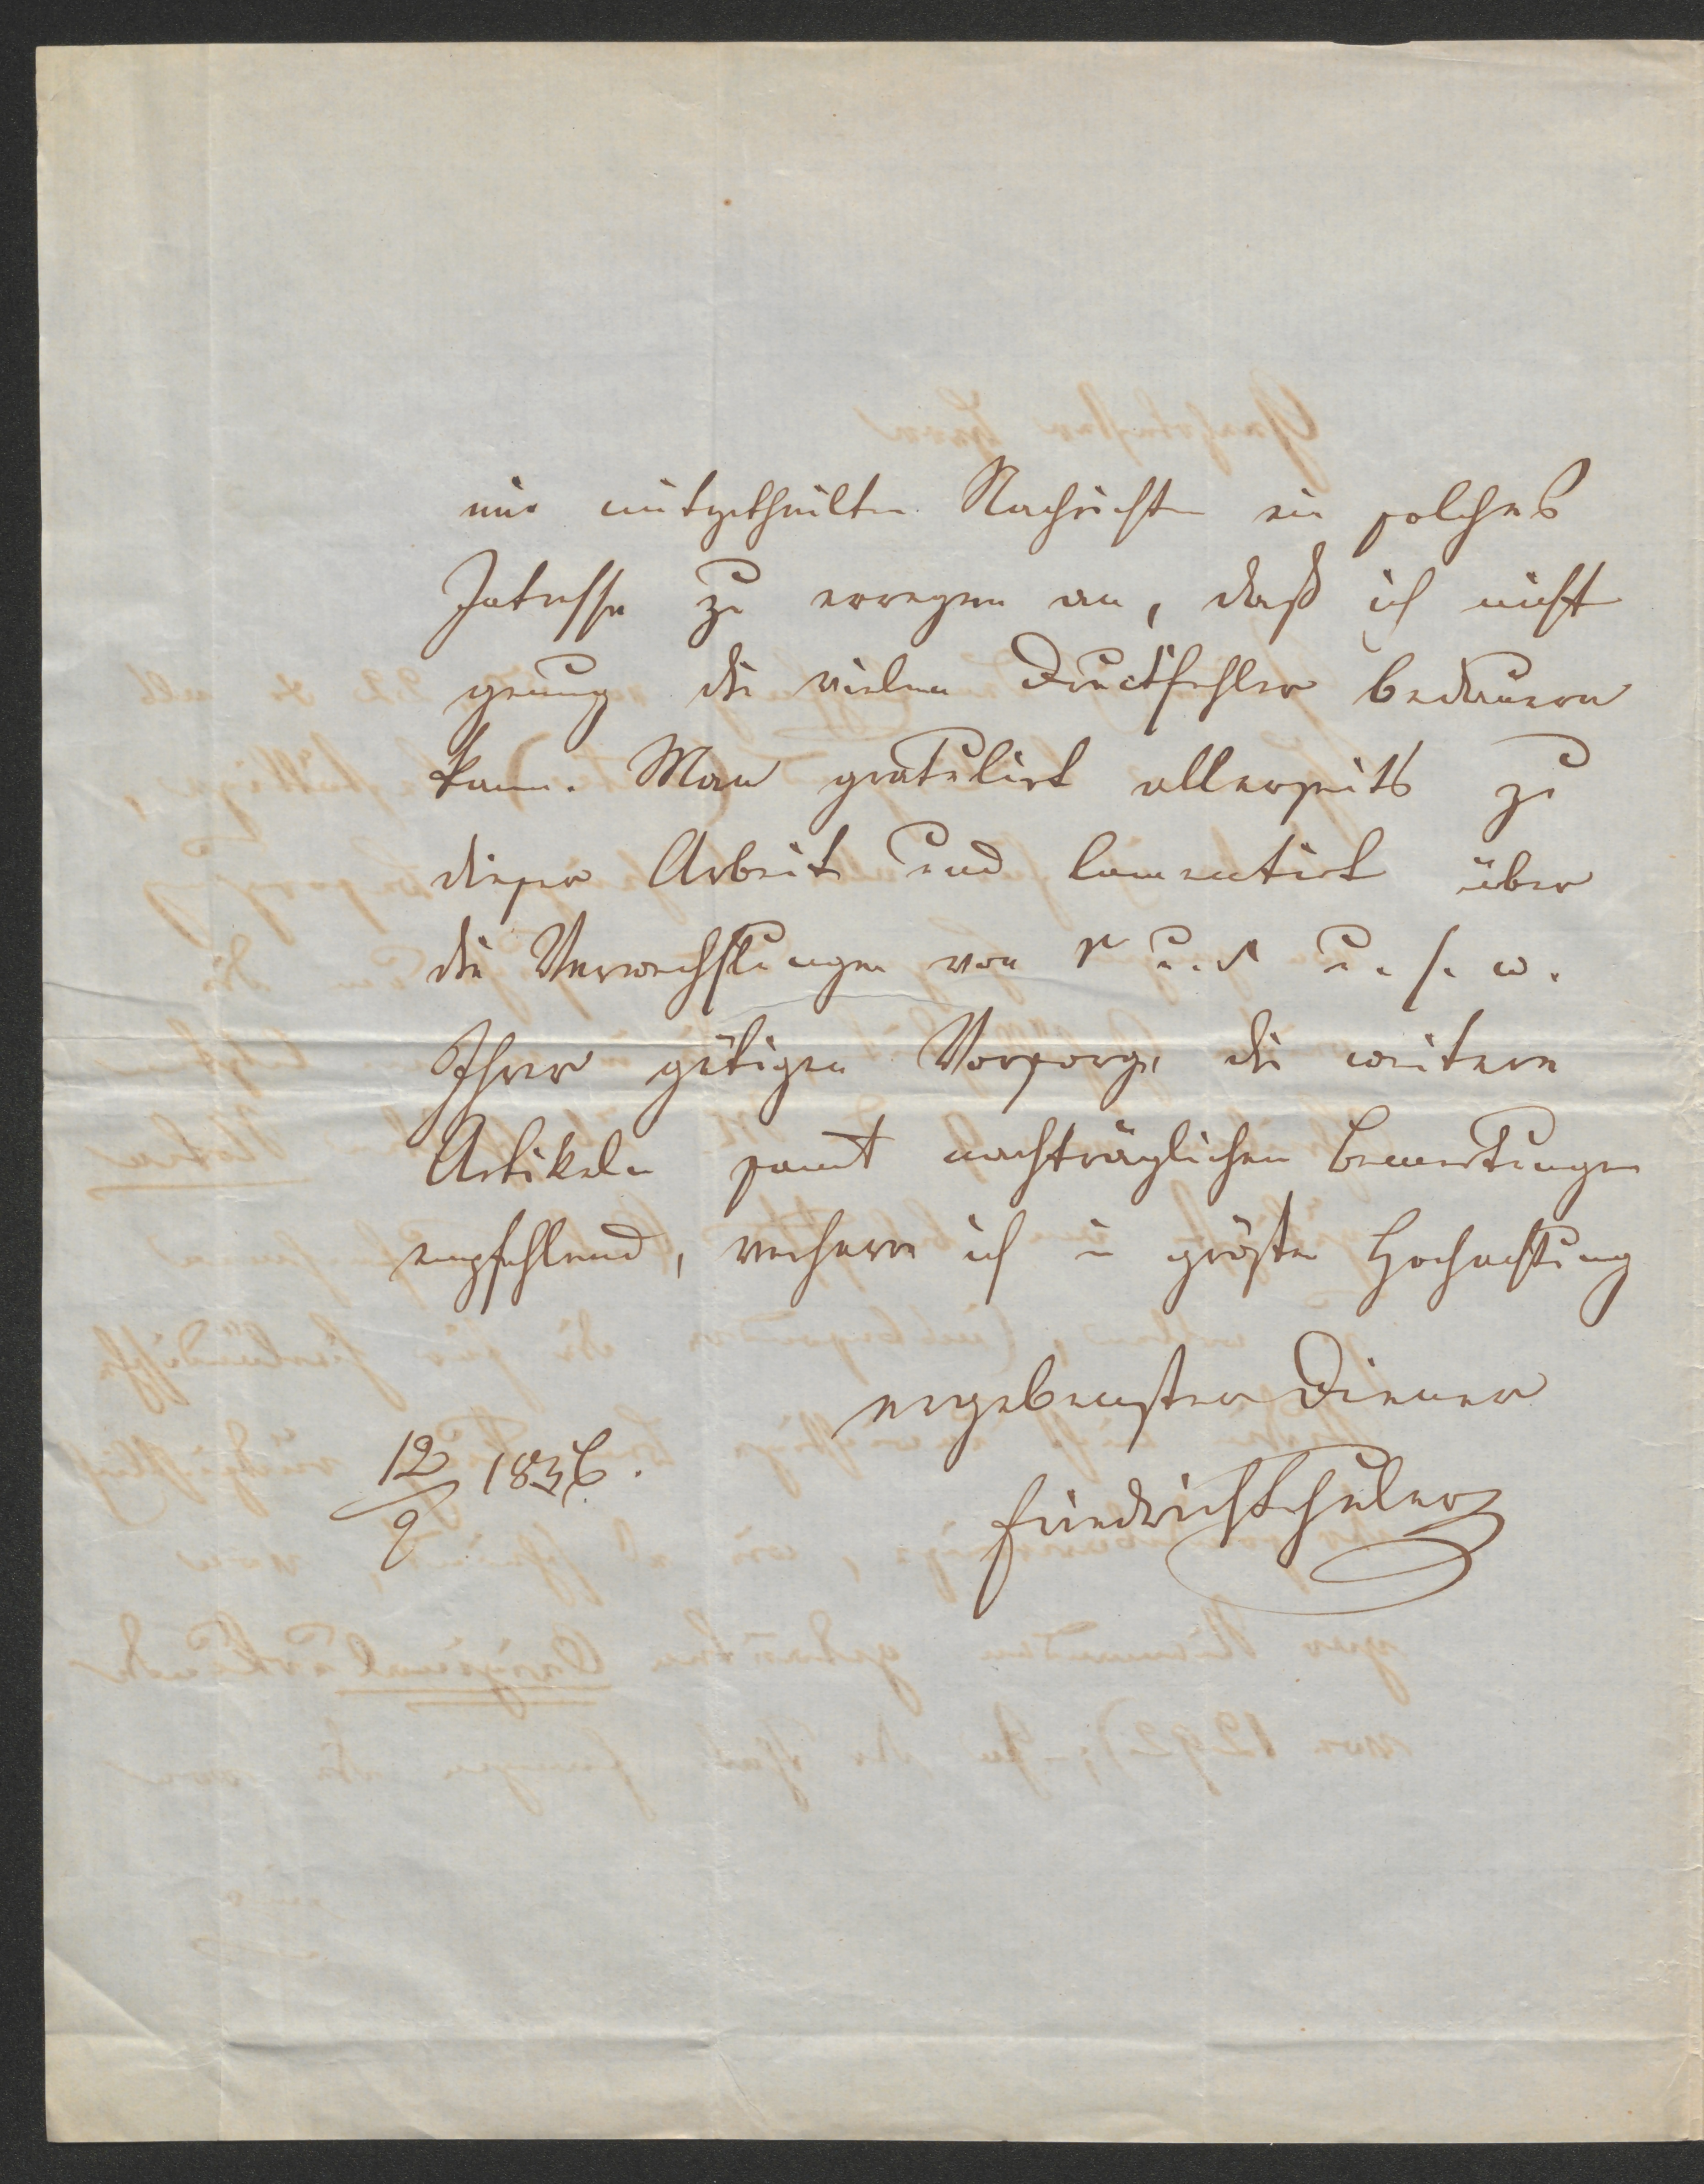 mir mitgetheilten Nachrichten ein solches
Intresse zu erregen an, daß ich nicht
genug die vielen Druckfehler bedauern
kann. Man gratulirt allerseits zu
dieser Arbeit und lamentirt über
die Verwechslungen von r u. s u. s. w.
Ihrer gütigen Vorsorge die weitern
Artikeln samt nachträglichen Bemerkungen
empfehlend, verharre ich in größter Hochachtung
ergebenster Diener
12/9 1836.
Friedrich Schuler